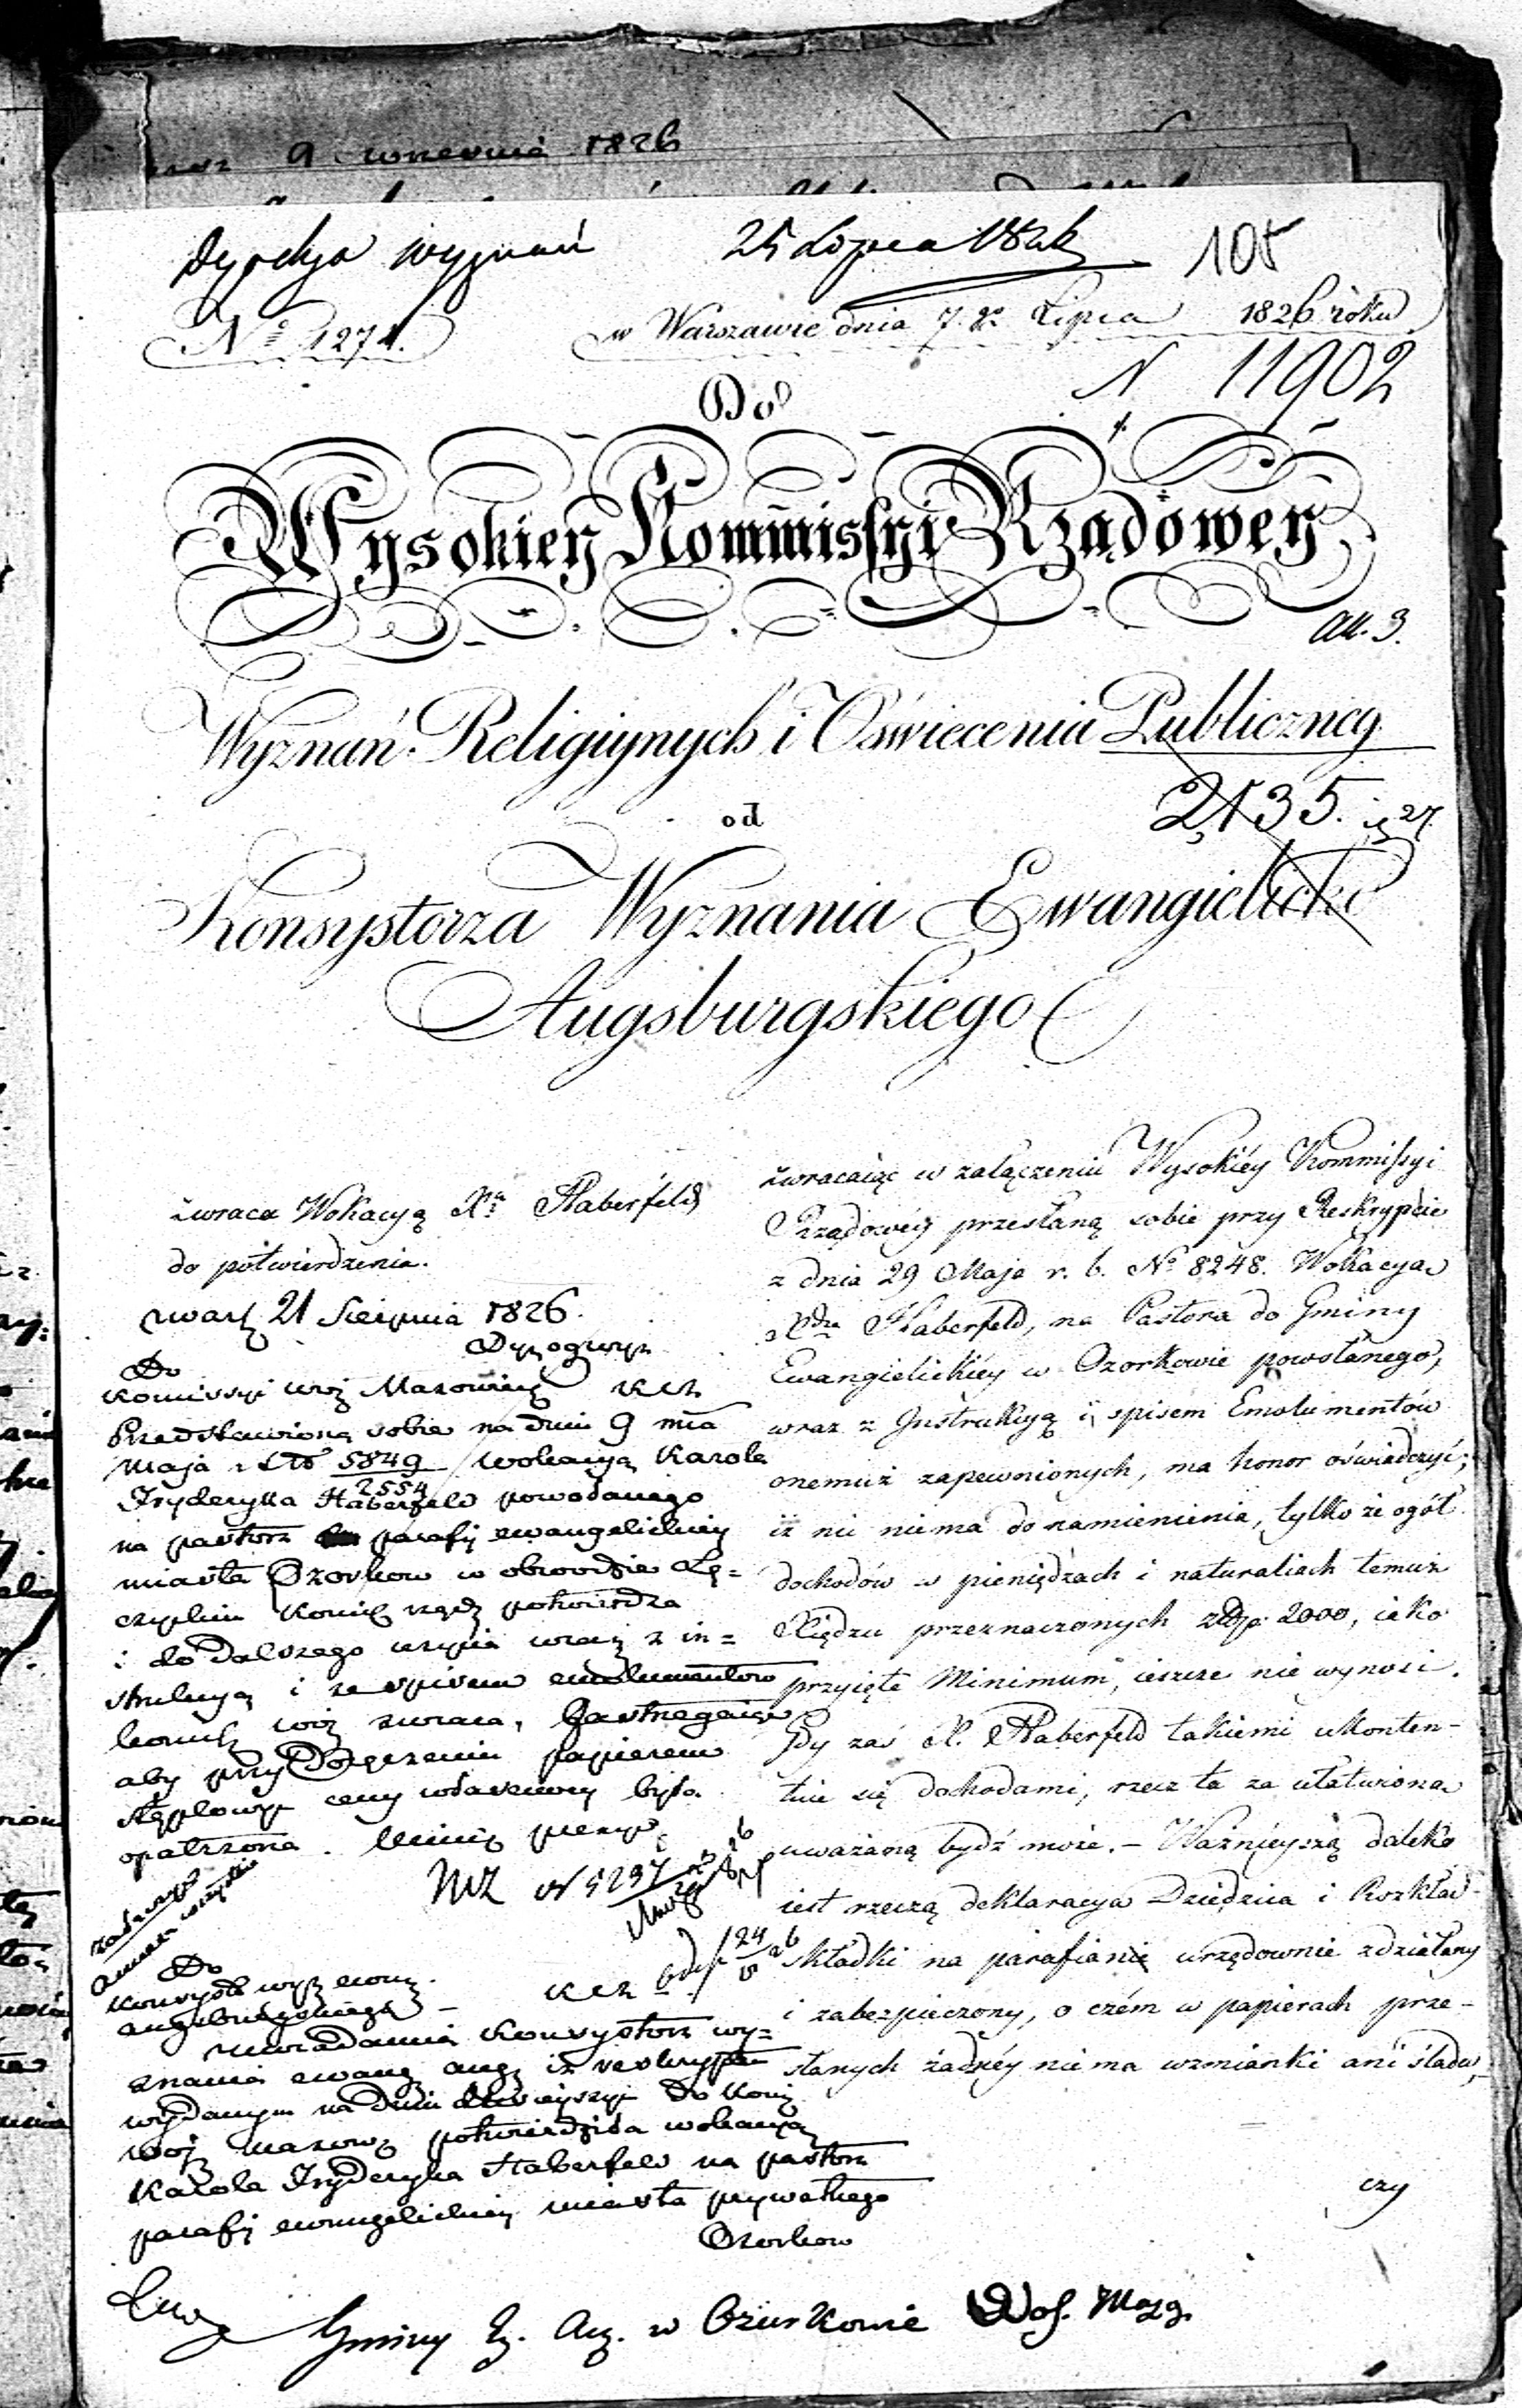 9 wrzesnia 1826
Dyrekcya Wyznań 25 Lipca 1826 105
No 1271. w Warszawie dnia 7. go Lipca 1826 roku
N 11902
Do
Wysokiey Kommissyi Rządowey
Wyznań Religiynych i Oświecenia Publiczney
2135.
od
Konsystorza Wyznania Ewangielicko
Augsburgskiego
zwraca Wokacyą Xa Haberfeld
do potwierdzenia.
21 Sierpnia 1826.
Do
Kommissyi Mazowiec
Przedstawioną sobie na dniu 9 mca
Maja 5849/2554 wokacyą Karola
Fryderyka Haberfeld powołanego
na pastora parafij ewangelickiey
miasta Ozorkow w obwodzie Łę=
czyckim rządz potwierdza
i do dalszego uzycia z in=
strukcyą i ze spisem emolumentow
zwraca, zastrzegaiąc
aby przy papierem
stęplowym ceny własciwey była
opatrzona.
MZ N 5297
Do
Konsyst
augsburgskiego
uwiadamia Konsystorz wy=
znania ewang aug iż reskryptem
wydanym na dniu dzisieyszym do Komis
woj mazow potwierdziła wokacyą
Karola Fryderyka Haberfeld na pastora
parafij ewangelickiey miasta prywatnego
Ozorkow
zwracaiąc w załączeniu Wysokiéy Kommissyi
Rządowéy przesłaną sobie przy Reskrypcie
z dnia 29 Maja r. b. No 8248. Wokacya
Xdza Haberfeld, na Pastora do Gminy
Ewangielickiéy w Ozorkowie powołanego,
wraz z Instrukcyą i spisem Emolumentów
onemuż zapewnionych, ma honor oświadczyć;
iż nic niema do namienienia, tylko że ogół
dochodów w pieniędzach i naturaliach temuż
Xiędzu przeznaczonych złp. 2000, iako
przyięte Minimum, ieszcze nie wynosi.
Gdy zaś X. Haberfeld takiemi ukonten-
tuie się dochodami, rzecz ta za ułatwioną
uważaną bydź może. - Ważnieyszą daleko
iest rzeczą deklaracya Dziedzica i Rozkład
składki na parafianie urzędownie zdziełany
i zabezpieczony, o czém w papierach prze-
słanych żadnéy niema wzmianki ani śladu,
czy
Gminy Ew. Aug. w Ozorkowie Woj. Maz.